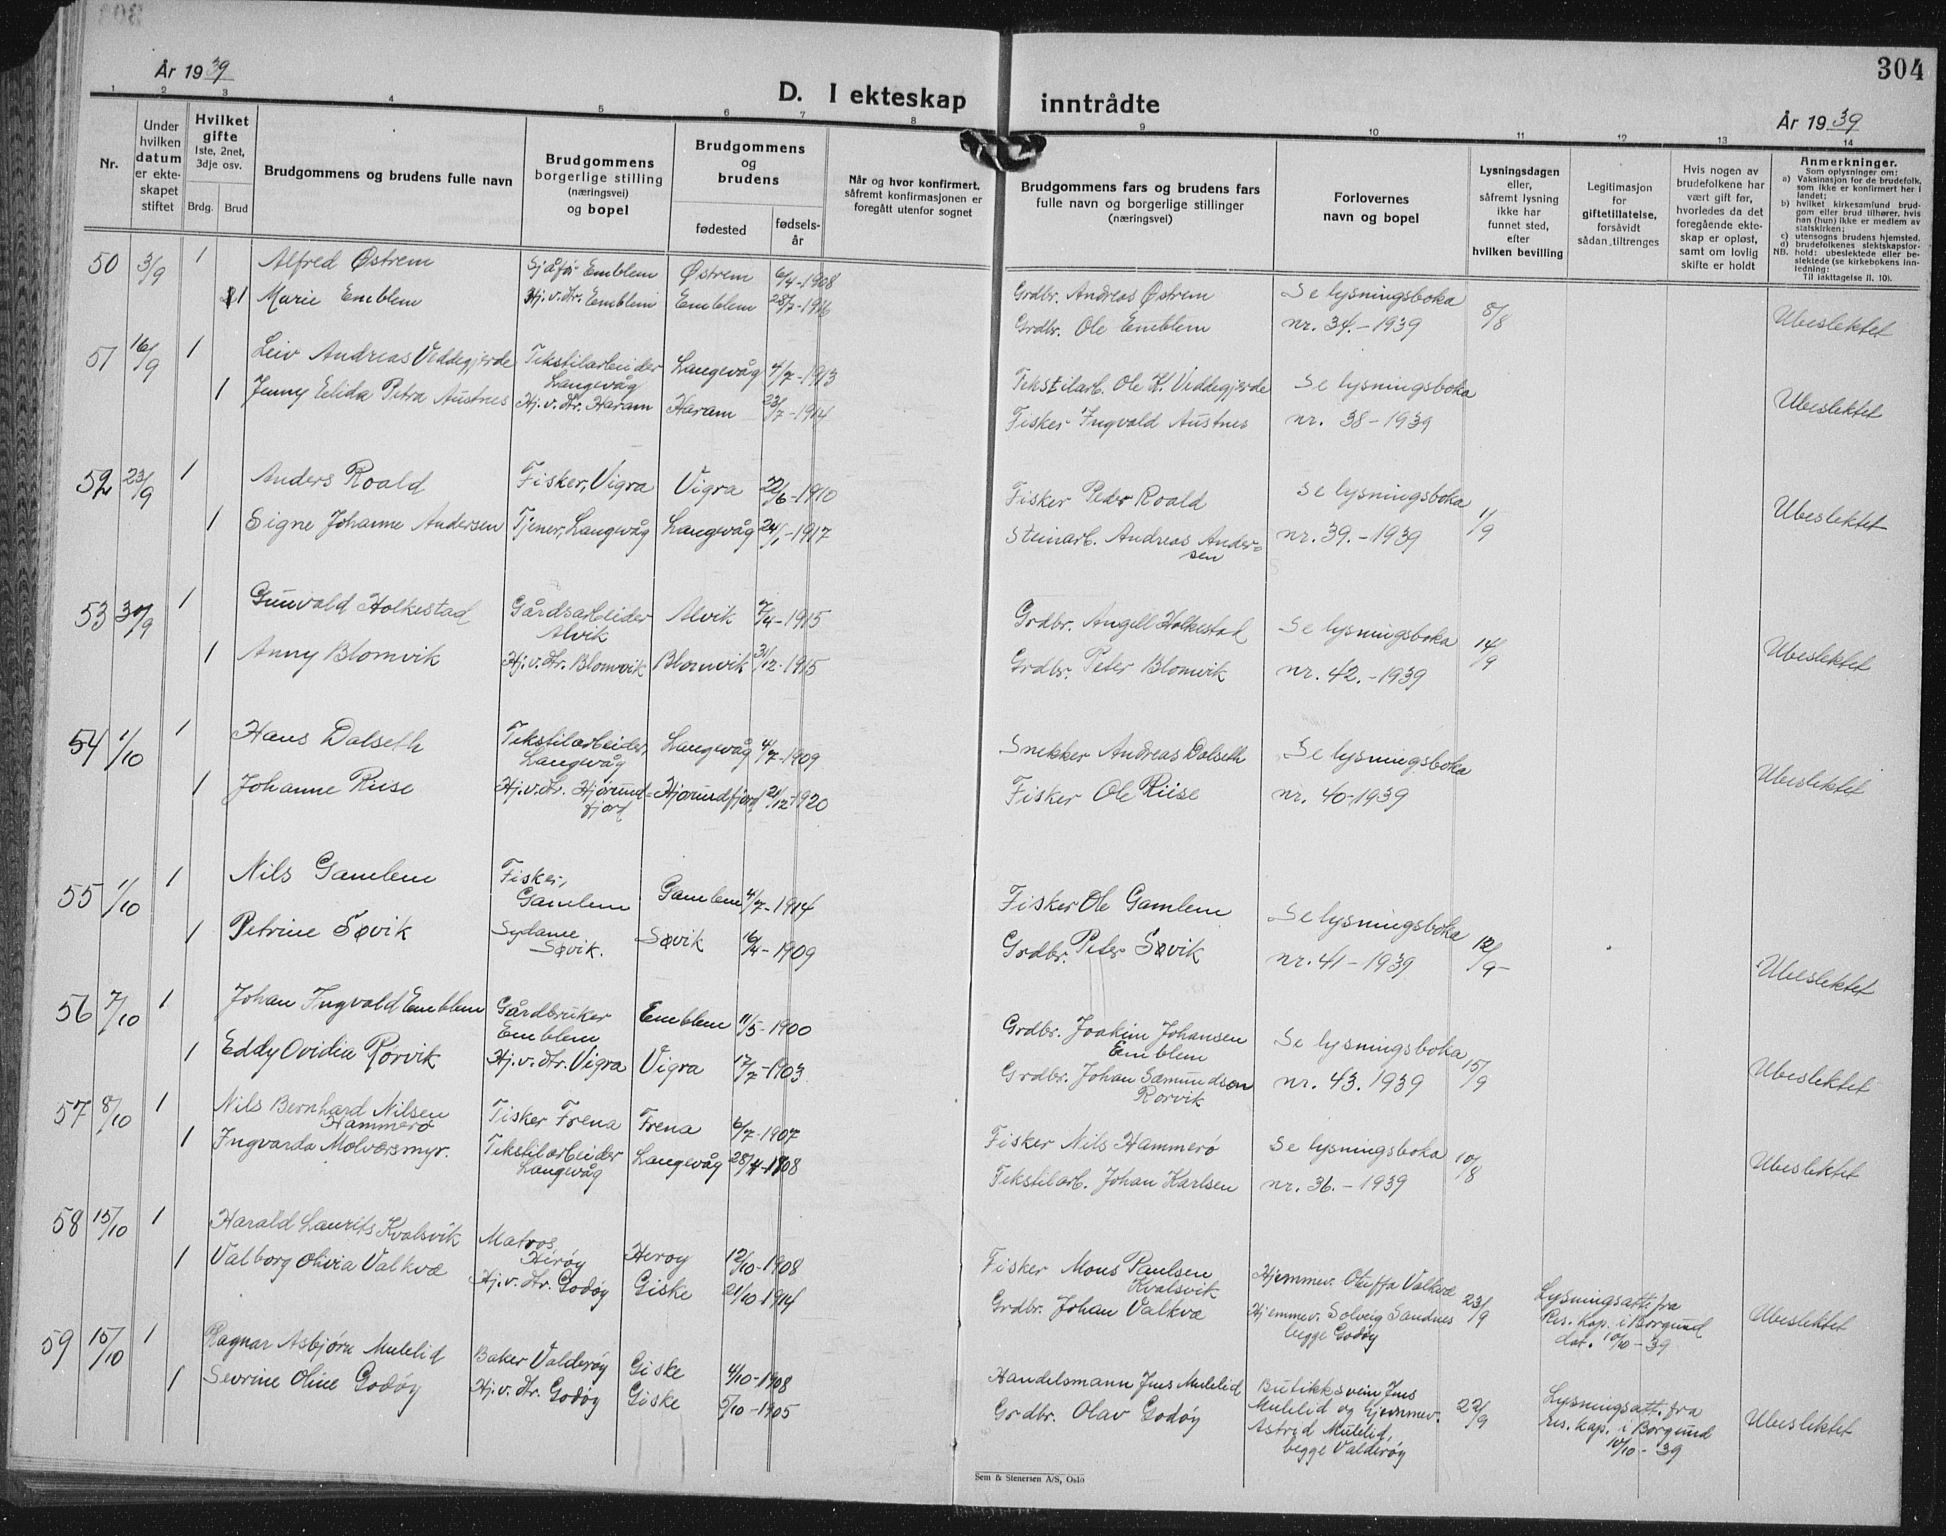 304
År 1939
D. I ekteskap inntrådte
År 1939
1 2 3 4 5 6 7 8 9 10 11 12 13 14
Nr.
Under hvilken datum er ekteskapet stiftet
Hvilket gifte
1ste, 2net, 3dje osv.
Brdg. Brud
Brudgommens og brudens fulle navn
Brudgommens borgerlige stilling (næringsvei) og bopel
Brudgommens og brudens
fødested
fødselsår
Når og hvor konfirmert, såfremt konfirmasjonen er foregått utenfor sognet
Brudgommens fars og brudens fars fulle navn og borgerlige stillinger (næringsvei)
Forlovernes navn og bopel
Lysningsdagen eller, såfremt lysning ikke har funnet sted, efter hvilken bevilling
Legitimasjon for giftetillatelse, forsåvidt sådan tiltrenges
Hvis nogen av brudefolkene har vært gift før, hvorledes da det foregående ekteskap er opløst, samt om lovlig skifte er holdt
Anmerkninger.
Som oplysninger om:
a) Vaksinasjon for de brudefolk, som ikke er konfirmert her i landet;
b) hvilket kirkesamfund brudgom eller brud tilhører, hvis han (hun) ikke er medlem av statskirken;
c) utensogns brudens hjemsted.
d) brudefolkenes slektskapsforhold: ubeslektede eller beslektede (se kirkebokens innledning;
NB. Til iakttagelse II. 10).
50 3/9 1 Alfred Østrem Sjåfør Emblem Østrem 6/4-1908 Grdbr. Andreas Østrem Se lysningsboka 8/8 Ubeslektet
1 Marie Emblem Hj.v.dtr. Emblem Emblem 28/7-1916 Grdbr. Ole Emblem nr. 34.-1939
51 16/9 1 Leiv Andreas Veddegjerde Tekstilarbeider Langevåg Langevåg 4/7-1913 Tekstilarb. Ole K. Veddegjerde Se lysningsboka Ubeslektet
1 Jenny Elida Petra Austnes Hj.v.dtr. Haram Haram 23/7-1914 Fisker Ingvald Austnes nr. 38-1939
52 23/9 1 Anders Roald Fisker, Vigra Vigra 22/6-1910 Fisker Peder Roald Se lysningsboka 11/9 Ubeslektet
1 Signe Johanne Andersen Tjener, Langevåg Langevåg 24/1-1917 Steinarb. Andreas Andersen nr. 39.-1939
53 30/9 1 Gunvald Holkestad Gårdsarbeider Alvik Alvik 7/4-1915 Grdbr. Angell Holkestad Se lysningsboka 14/9 Ubeslektet
1 Anny Blomvik Hj.v.dtr. Blomvik Blomvik 31/12-1915 Grdbr. Peter Blomvik nr. 42.-1939
54 1/10 1 Hans Dalseth Tekstilarbeider, Langevåg Langevåg 4/7-1909 Snekker Andreas Dalseth Se lysningsboka Ubeslektet
1 Johanne Riise Hj.v.dtr. Hjørundfjord Hjørundfjord 21/12-1920 Fisker Ole Riise nr. 40-1939
55 1/10 1 Nils Gamlem Fisker, Gamlem Gamlem 4/7-1914 Fisker Ole Gamlem Se lysningsboka 12/9- Ubeslektet
1 Petrine Søvik Sydame Søvik. Søvik 16/4-1909 Grdbr. Peter Søvik nr. 41-1939
56 7/10 1 Johan Ingvald Emblem Gårdbruker Emblem Emblem 11/5-1900 Grdbr. Joakim Johansen Emblem Se lysningsboka 15/9 Ubeslektet
1 Eddy Ovidia Rørvik Hj.v.dtr. Vigra Vigra 17/7-1903 Grdbr. Johan Samundsen Rørvik nr. 43. 1939
57 8/10 1 Nils Bernhard Nilsen Hammerø Fisker Frena Frena 6/7-1907 Fisker Nils Hammerø Se lysningsboka 10/8 Ubeslektet
1 Ingvarda Molversmyr. Tekstilarbeider Langevåg Langevåg 28/4-1908 Tekstilarb. Johan Karlsen nr. 36.-1939
58 15/10 1 Harald Laurits Kvalsvik Matros Herøy Herøy 12/10-1908 Fisker Mons Paulsen Kvalsvik Hjemmev. Valkvæ 23/9 Lysningsatt. fra Ubeslektet
1 Valborg Olivia Valkvæ Hj.v.dtr. Godøy Giske 21/10-1914 Grdbr. Johan Valkvæ Hjemmev. Solveig Sandnes begge Godøy Res. kap. i Borgund dat. 10/10-39
59 15/10 1 Ragnar Asbjørn Mulelid Baker Valderøy Giske 4/10-1908 Handelsmann Jens Mulelid Butikksvein Jens Mulelid og hjemmev. 22/9 Lysningsatt. fra Ubeslektet
1 Sevrine Oline Godøy Hj.v.dtr. Godøy Giske 5/10-1905 Grdbr. Olav Godøy Astrid Mulelid, begge Valderøy res. kap. i Borgund 10/10-39
Sem & Stenersen A/S, Oslo